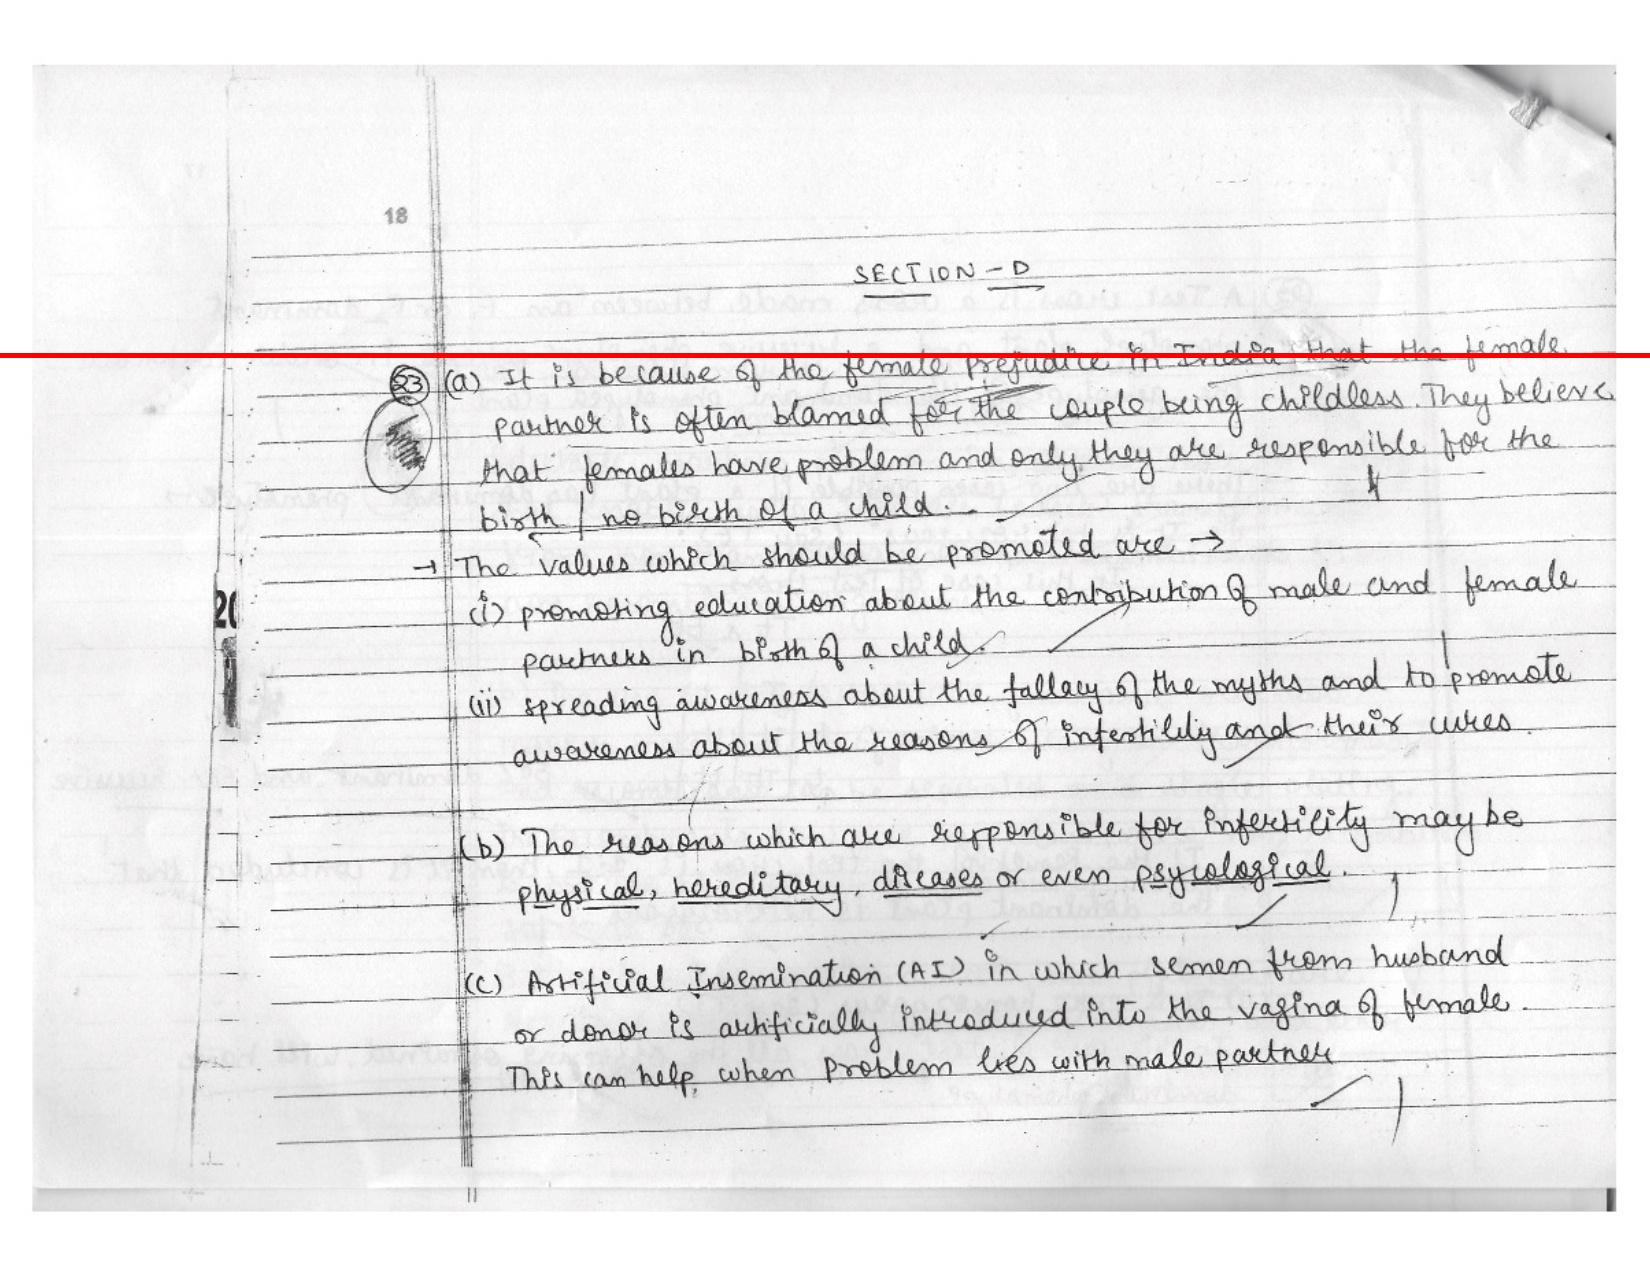 18
SECTION - D
23 (a) It is because of the female prejudice in India, that the female
partner is often blamed for the couple being childless. They believe
that females have problem and only they are responsible for the
birth / no birth of a child.
→ The values which should be promoted are →
(i) promoting education about the contribution of male and female
partners in birth of a child.
(ii) spreading awareness about the fallacy of the myths and to promote
awareness about the reasons of infertility and their cures.
(b) The reasons which are respponsible for infertility may be
physical, hereditary, diseases or even psycological.
(c) Artificial Insemination (AI) in which semen from husband
or donor is artificially introduced into the vagina of female.
This can help, when problem lies with male partner